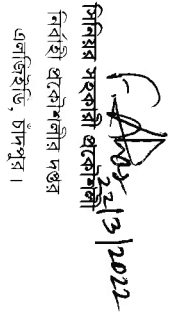 22/3/2022
সিনিয়র সহকারী প্রকৌশলী
নির্বাহী প্রকৌশলীর দপ্তর
এলজিইডি, চাঁদপুর।